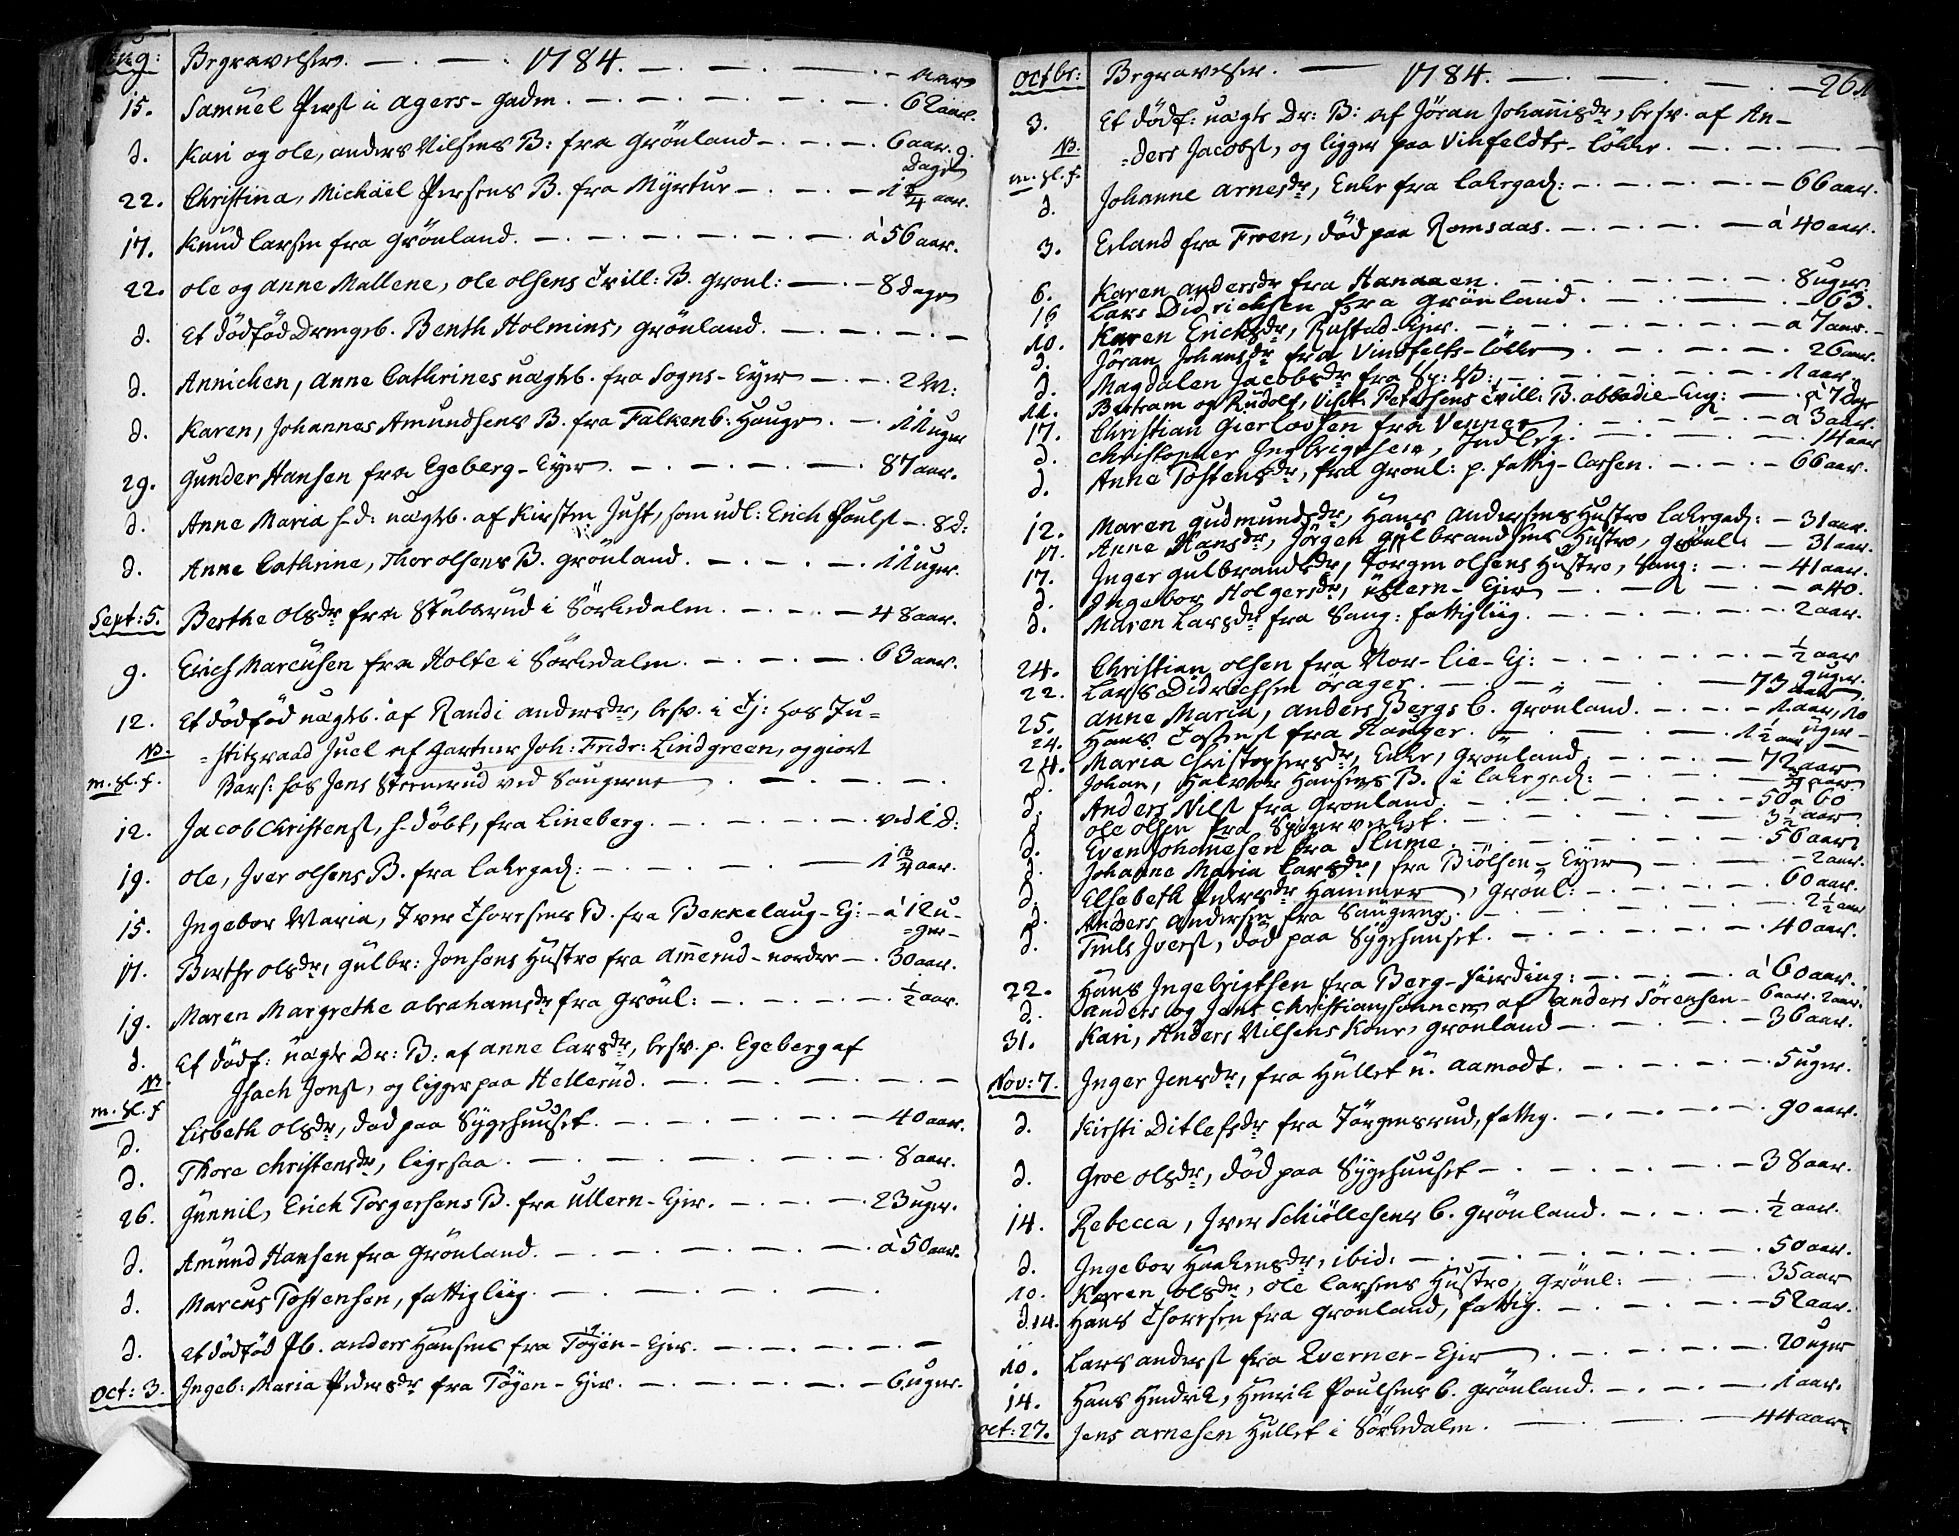 Aug: Begravelser. 1784. Aar
15. Samuel Pers: i Agers-Gaden. 62 aar.
d. Kari og Ole, Anders Nilsens B: fra Grönland 6 aar. 9. Dage
22. Christina, Michäel Persens B. fra Myrtue 1 2/4 aar.
17. Knud Larsen fra Grönland. à 56 aar.
22. Ole og Anne Mallene, Ole Olsens Tvill: B. Grönl: 8 Dage
d. Et dödföd Drengeb. Benth Holmins, Grönland.
d. Annichen, Anne Cathrines uägteb. fra Sogns-Eyer 2 W:
d. Karen, Johannes Amundsens B. fra Falkenb: Houge 11 uger
29. Gunder Hansen fra Egeberg-Eyer. 87 aar.
d. Anne Maria h-d: uägteb. af Kirsten Just, som udl: Erich Pouls: 8 d:
d. Anne Cathrine, Thor Olsens B. Grönland. 11 uger.
Sept: 5. Berthe Olsdr fra Stubberud i Sörkedalen. 48 aar.
9. Erich Marcusen fra Holte i Sörkedalen. 63 aar.
12. Et dödföd uägteb. af Randi Andersdr, besv. i Tj: hos Ju=
NB. =stitzraad Juel af Gartner Joh: Fridr: Lindgreen, og giort
m. Sl. f. Bars: hos Jens Steenerud ved Saugerne
12. Jacob Christens:, h-döbt, fra Lineberg. ved 1 D:
19. Ole, Iver Olsens B. fra Lakegad: 1 3/4 aar.
15. Ingebor Maria, Iver Thoresens B. fra Bekkelaug-Ej: à 12 u=
=ger
17. Berthe Olsdr, Gulbr: Jonsons Hustro fra Ammerud-nordre 30 aar.
19. Maren Margrethe Abrahamsdr fra Grönl: 1/2 aar.
d. Et dödf: uägte Dr: B: af Anne Larsdr, besv. p. Egeberg af
NB. Isach Jons:, og ligger paa Hellerud.
m. Sl. f
d. Lisbeth Olsdr, död paa Sygehuuset. 40 aar.
d. Thore Christensdr, ligesaa. 8 aar.
26. Gunnil, Erich Torgersens B. fra Ullern-Ejer. 23 uger.
d. Amund Hansen fra Grönland. à 50 aar.
d. Marcus Tostensen, fattigliig.
d. Et dödföd Pb. Anders Hansens fra Töyen-Ejer.
Oct: 3. Ingeb: Maria Pedersdr fra Töyen-Ejer. 6 uger.
Octbr: Begravelser. 1784. 261
3. Et dödf: uägte Dr: B: af Jöran Johannisdr, besv. af An-
NB. =ders Jacobs:, og ligger paa Vinfeldts-lökke.
m. Sl. f.
d. Johanne Arnesdr, Enke fra Lakegad: 66 aar.
3. Erland fra Froen, död paa Romsaas. à 40 aar.
6. Karen Andersdr fra Hanaaen. 8 uger.
16 Lars Didrichsen fra Grönland. 63.
10. Karen Ericksdr, Rustad-Ejer. à 7 aar.
d. Jöran Johansdr fra Vindfelts-lökke 26 aar.
d. Magdalen Jacobsdr fra Sp: W: 1 aar.
11. Bertram og Rudolf, Petersens Tvill: B. Abbadie-Eng: à 7 Dag
17. Christian Gierlovsen fra Venner à 3 aar.
d. Christopher Ingbrigtsen, Indleg. 14 aar
d. Anne Tostensdr, fra Grönl: p. fattig-Cassen. 66 aar.
12. Maren Gudmundsdr, Hans Andersens Hustro Lakegad: 31 aar.
17. Anne Hansdr, Jörgen Gulbrandsens Hustro, Grönl: 31 aar.
17. Inger Gulbrandsdr, Torgen Olsens Hustro, Saug: 41 aar.
d. Ingebor Holgersdr, Ullern-Ejer à 40.
d. Maren Larsdr fra Saug: fattigliig. 2 aar.
24. Christian Olsen fra Nor-Lie-Ej: 1/2 aar
22. Lars Didrichsen Örager. 9 uger. 73 aar
25. Anne Maria, Anders Bergs B. Grönland. 1 aar, 10 uger
24. Hans Tostens: fra Hauger. 1 1/2 aar
24. Maria Christophersdr, Enke, Grönland 72 aar
d. Johan, Halvor Hansens B. i Lakegad: 3/4 aar
d. Anders Nils: fra Grönland. 50 a 60
d. Ole Olsen fra Spigerverket. 3 1/2 aar
d. Even Johannesen fra Flume. 56 aar
d. Johanne Maria Larsdr, fra Biölsen-Eyer 2 aar.
d. Elsebeth Pedersdr Hammer, Grönl: 60 aar.
d. Anders Andersen fra Saugerne. 2 1/2 aar
d. Truls Ivers:, död paa Sygehuuset. 40 aar.
22. Hans Ingebrigtsen fra Berg-Fierding: à 60 aar.
d. Anders og Jens Christian Sönner af Anders Sörensen 6 aar. 2 aar.
31. Kari, Anders Nilsens Kone, Grönland 36 aar.
Nov: 7. Inger Jensdr, fra Hullet u. Aamodt. 5 uger.
d. Kirsti Ditlefsdr fra Jörgensrud, fattig. 90 aar.
d. Groe Olsdr, död paa Sygehuuset 38 aar.
14. Rebecca, Iver Schiöllesens B. Grönland. 1/2 aar.
d. Ingebor Haakensdr, ibid: 50 aar.
10. Karen Olsdr, Ole Larsens Hustro, Grönl: 35 aar
d. 14. Hans Thoresen fra Grönland, fattig. 52 aar.
10. Lars Anders: fra Qverner-Ejer 20 uger
14. Hans Hendrik, Henrik Poulsens B. Grönland. 1 aar.
Oct: 27. Jens Arnesen Hullet i Sörkedalen. 44 aar